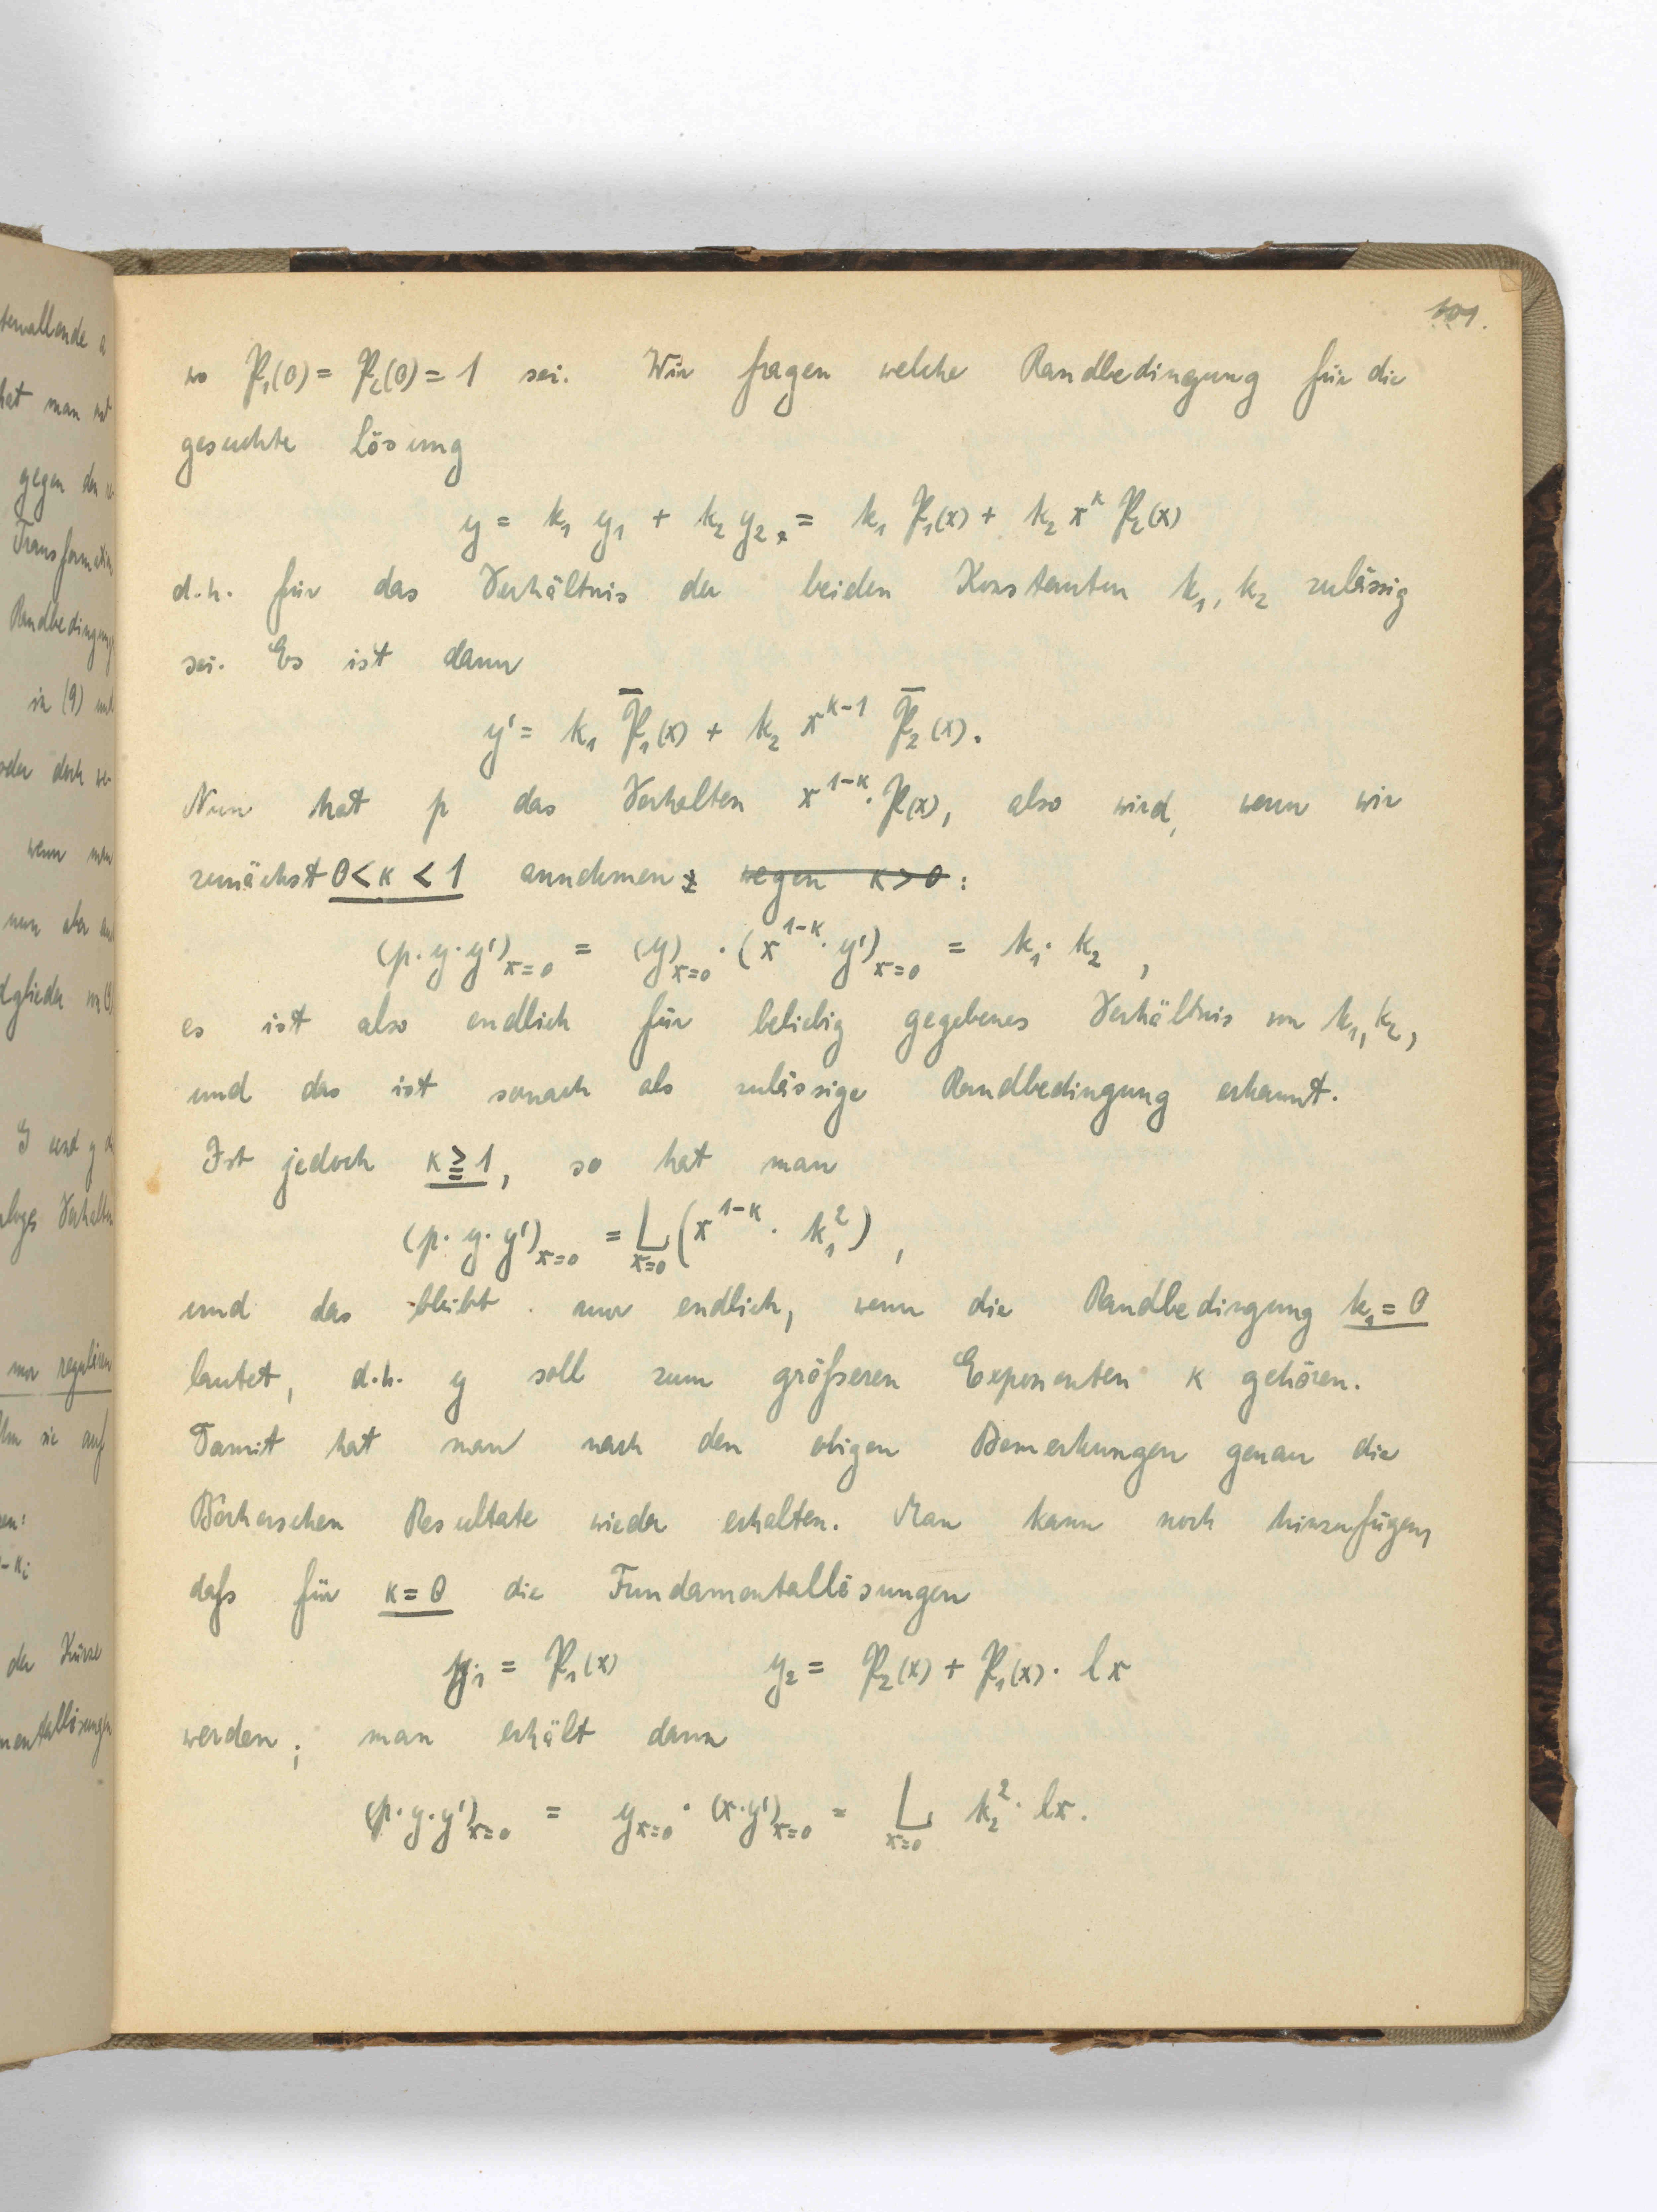 101.
wo 𝔓₁(0) = 𝔓₂(0) = 1 sei. Wir fragen welche Randbedingung für die
gesuchte Lösung
y = k₁ y₁ + k₂ y₂ = k₁ 𝔓₁(x) + k₂ x^κ 𝔓₂(x)
d.h. für das Verhältnis der beiden Konstanten k₁, k₂ zulässig
sei. Es ist dann
y' = k₁ 𝔓̄₁(x) + k₂ x^{κ-1} 𝔓̄₂(x).
Nun hat p das Verhalten x^{1-κ}·𝔓(x), also wird, wenn wir
zunächst 0 < κ < 1 annehmen wegen κ > 0 :
(p·y·y')_{x=0} = (y)_{x=0} · (x^{1-κ}·y')_{x=0} = k₁· k₂ ,
es ist also endlich für beliebig gegebenes Verhältnis von k₁, k₂,
und das ist sonach als zulässige Randbedingung erkannt.
Ist jedoch κ ≧ 1, so hat man
(p· y· y')_{x=0} = L_{x=0} (x^{1-κ} · k₁²) ,
und das bleibt nur endlich, wenn die Randbedingung k₁ = 0
lautet, d.h. y soll zum größeren Exponenten κ gehören.
Damit hat man nach den obigen Bemerkungen genau die
Bôcherschen Resultate wieder erhalten. Man kann noch hinzufügen,
daß für κ = 0 die Fundamentallösungen
y₁ = 𝔓₁(x) y₂ = 𝔓₂(x) + 𝔓₁(x)· lx
werden; man erhält dann
(p·y·y')_{x=0} = y_{x=0} · (x·y')_{x=0} = L_{x=0} k₂² · lx.